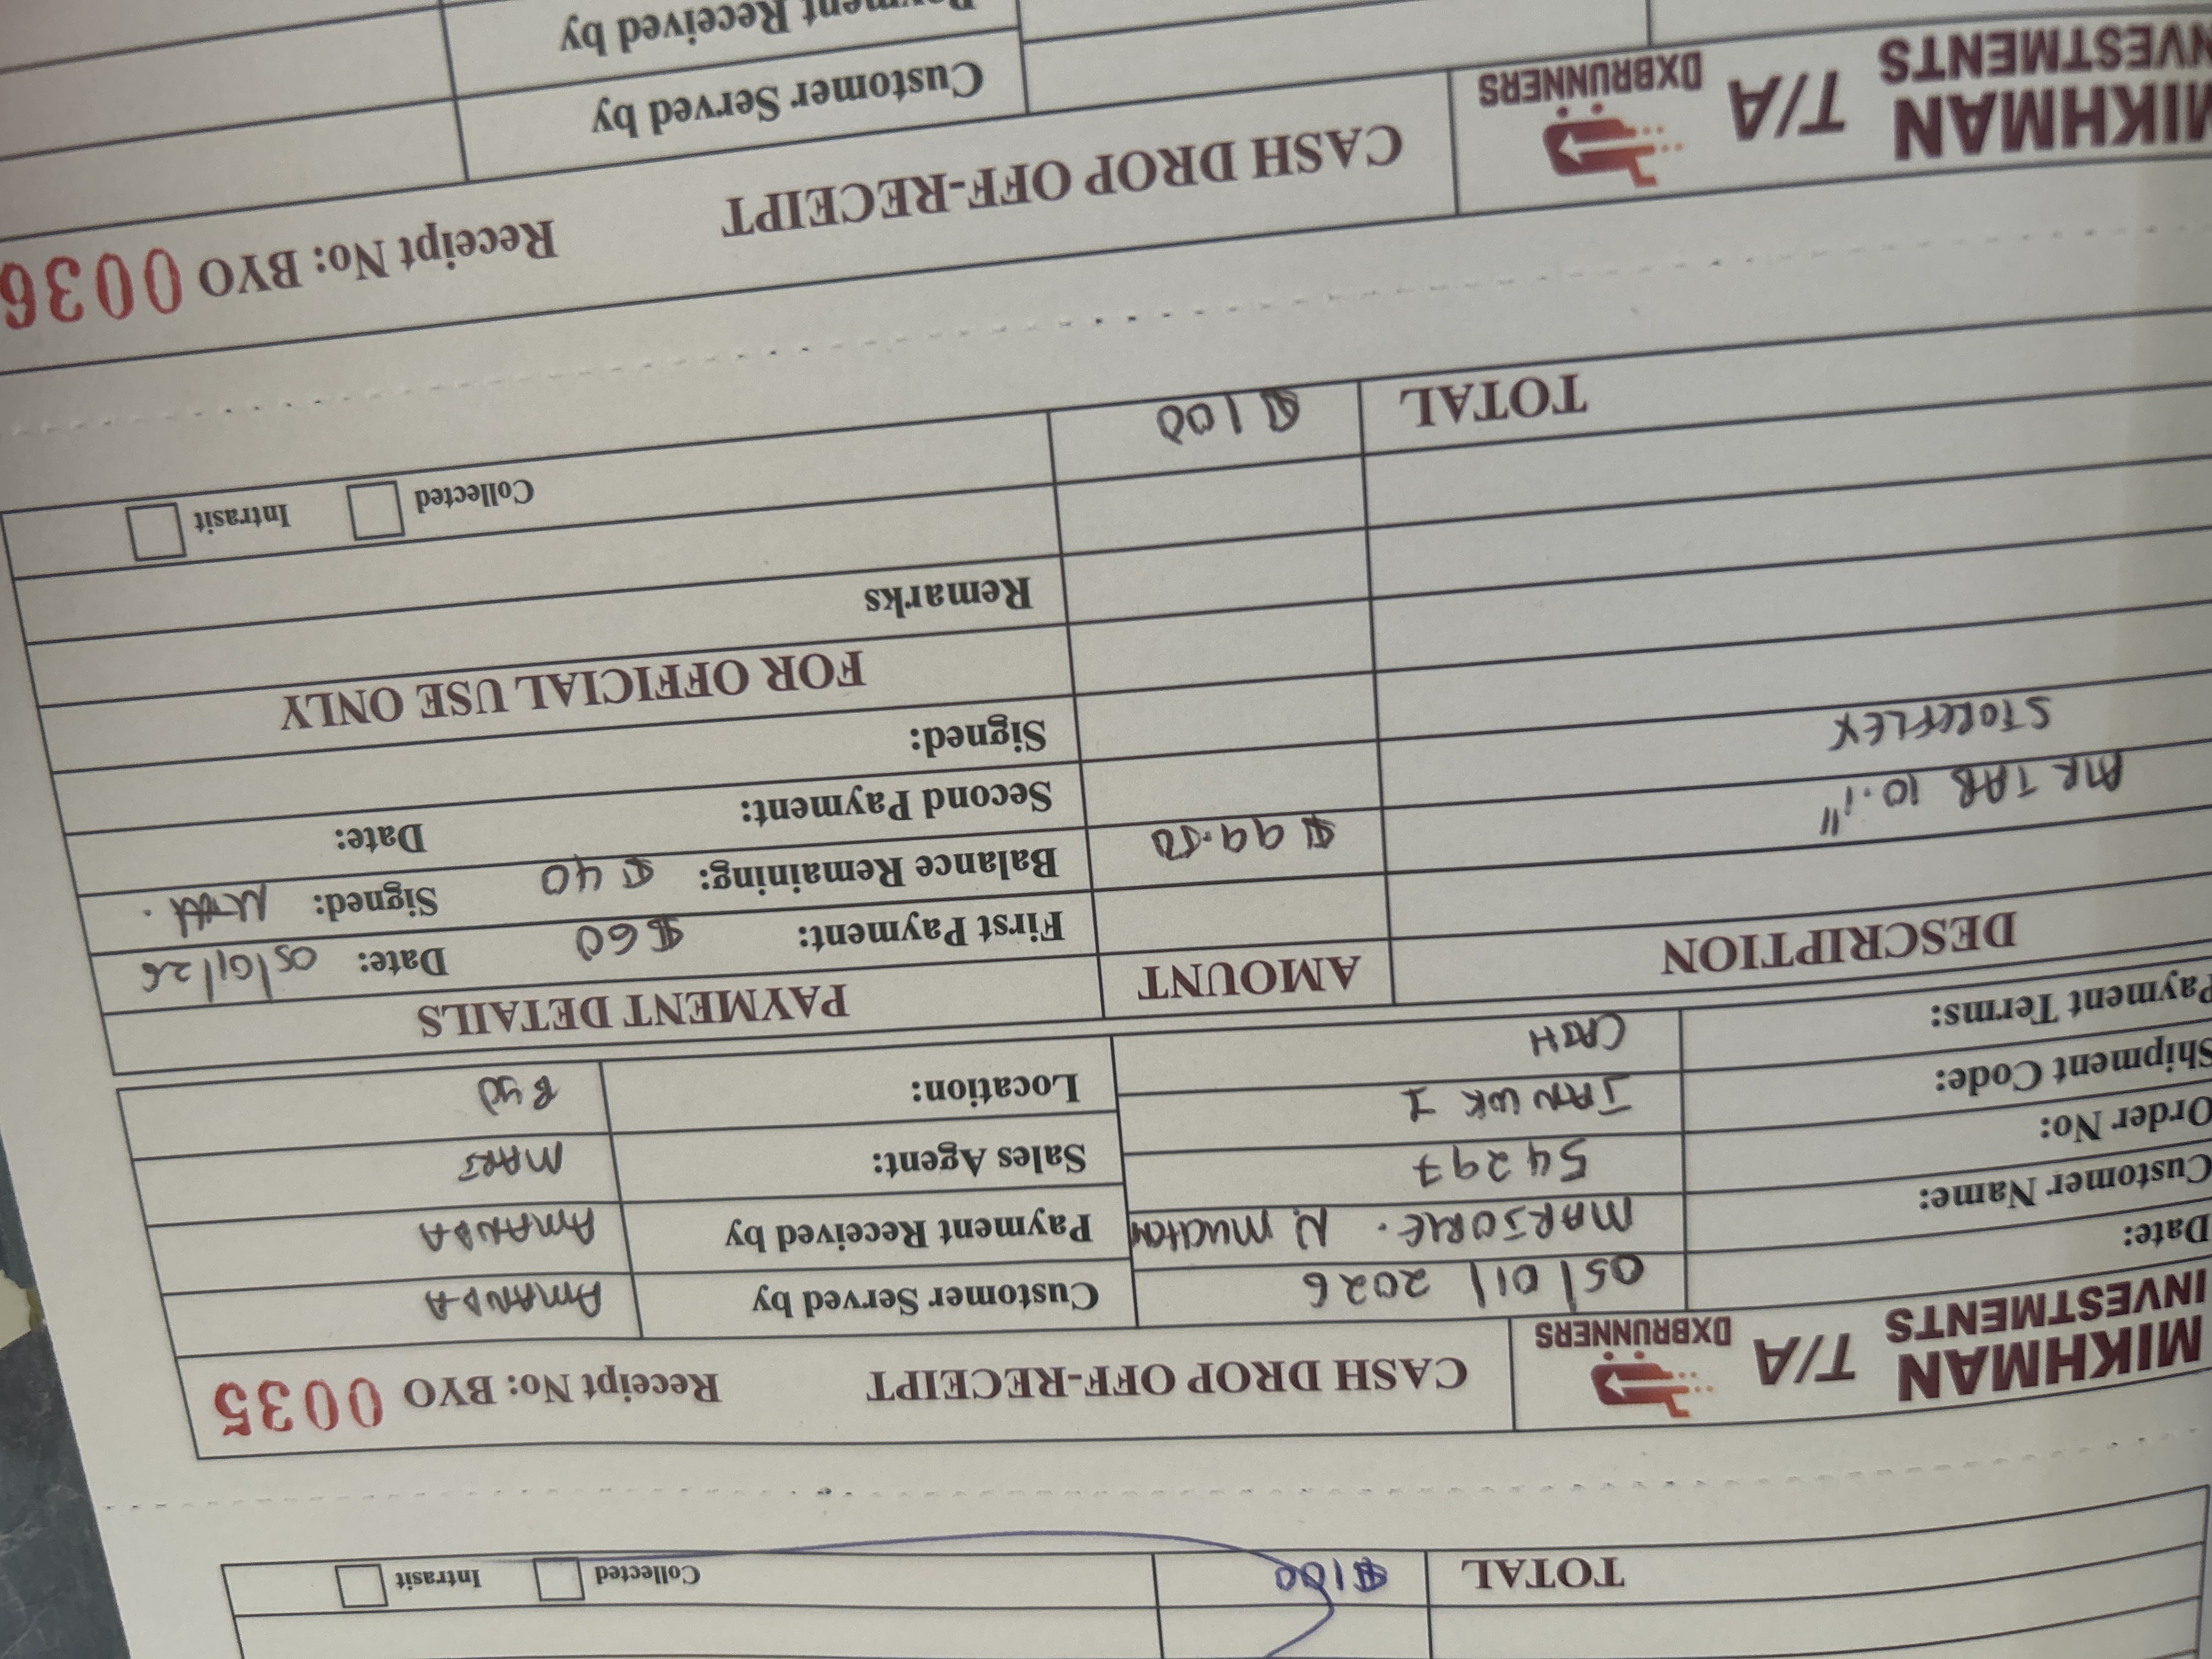 TOTAL $100 Collected Intrasit
MIKHMAN INVESTMENTS T/A DXBRUNNERS CASH DROP OFF-RECEIPT Receipt No: BYO 0035
Date: 05/01/2026 Customer Served by AMANDA
Customer Name: MARJORIE. N. Payment Received by AMANDA
Order No: 54297 Sales Agent: MARJ
Shipment Code: JAN WK 1 Location: BYO
Payment Terms: CASH
DESCRIPTION AMOUNT PAYMENT DETAILS
First Payment: $60 Date: 05/01/26
AIR TAB 10.1" $99.50 Balance Remaining: $40 Signed:
STOREFLEX Second Payment: Date:
Signed:
FOR OFFICIAL USE ONLY
Remarks
TOTAL $100 Collected Intrasit
MIKHMAN INVESTMENTS T/A DXBRUNNERS CASH DROP OFF-RECEIPT Receipt No: BYO 0036
Customer Served by
Payment Received by